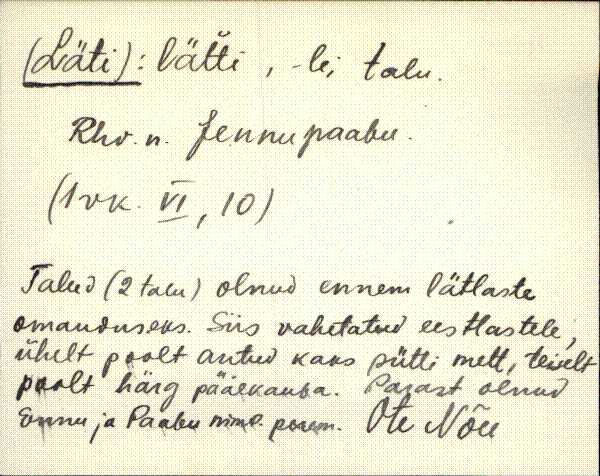 (Läti): lätti, -le, talu.
Rhv. n. Jennupaabu.
(1 vk. VI, 10)
Talud (2 talu) olnud ennem lätlaste
omanduseks. Siis vahetatud eestlastele,
ühelt poolt antud kaks pütti mett, teiselt
poolt härg pääle kauba. Pärast olnud
Ennu ja Paabu nime. parem. Ote Nõu